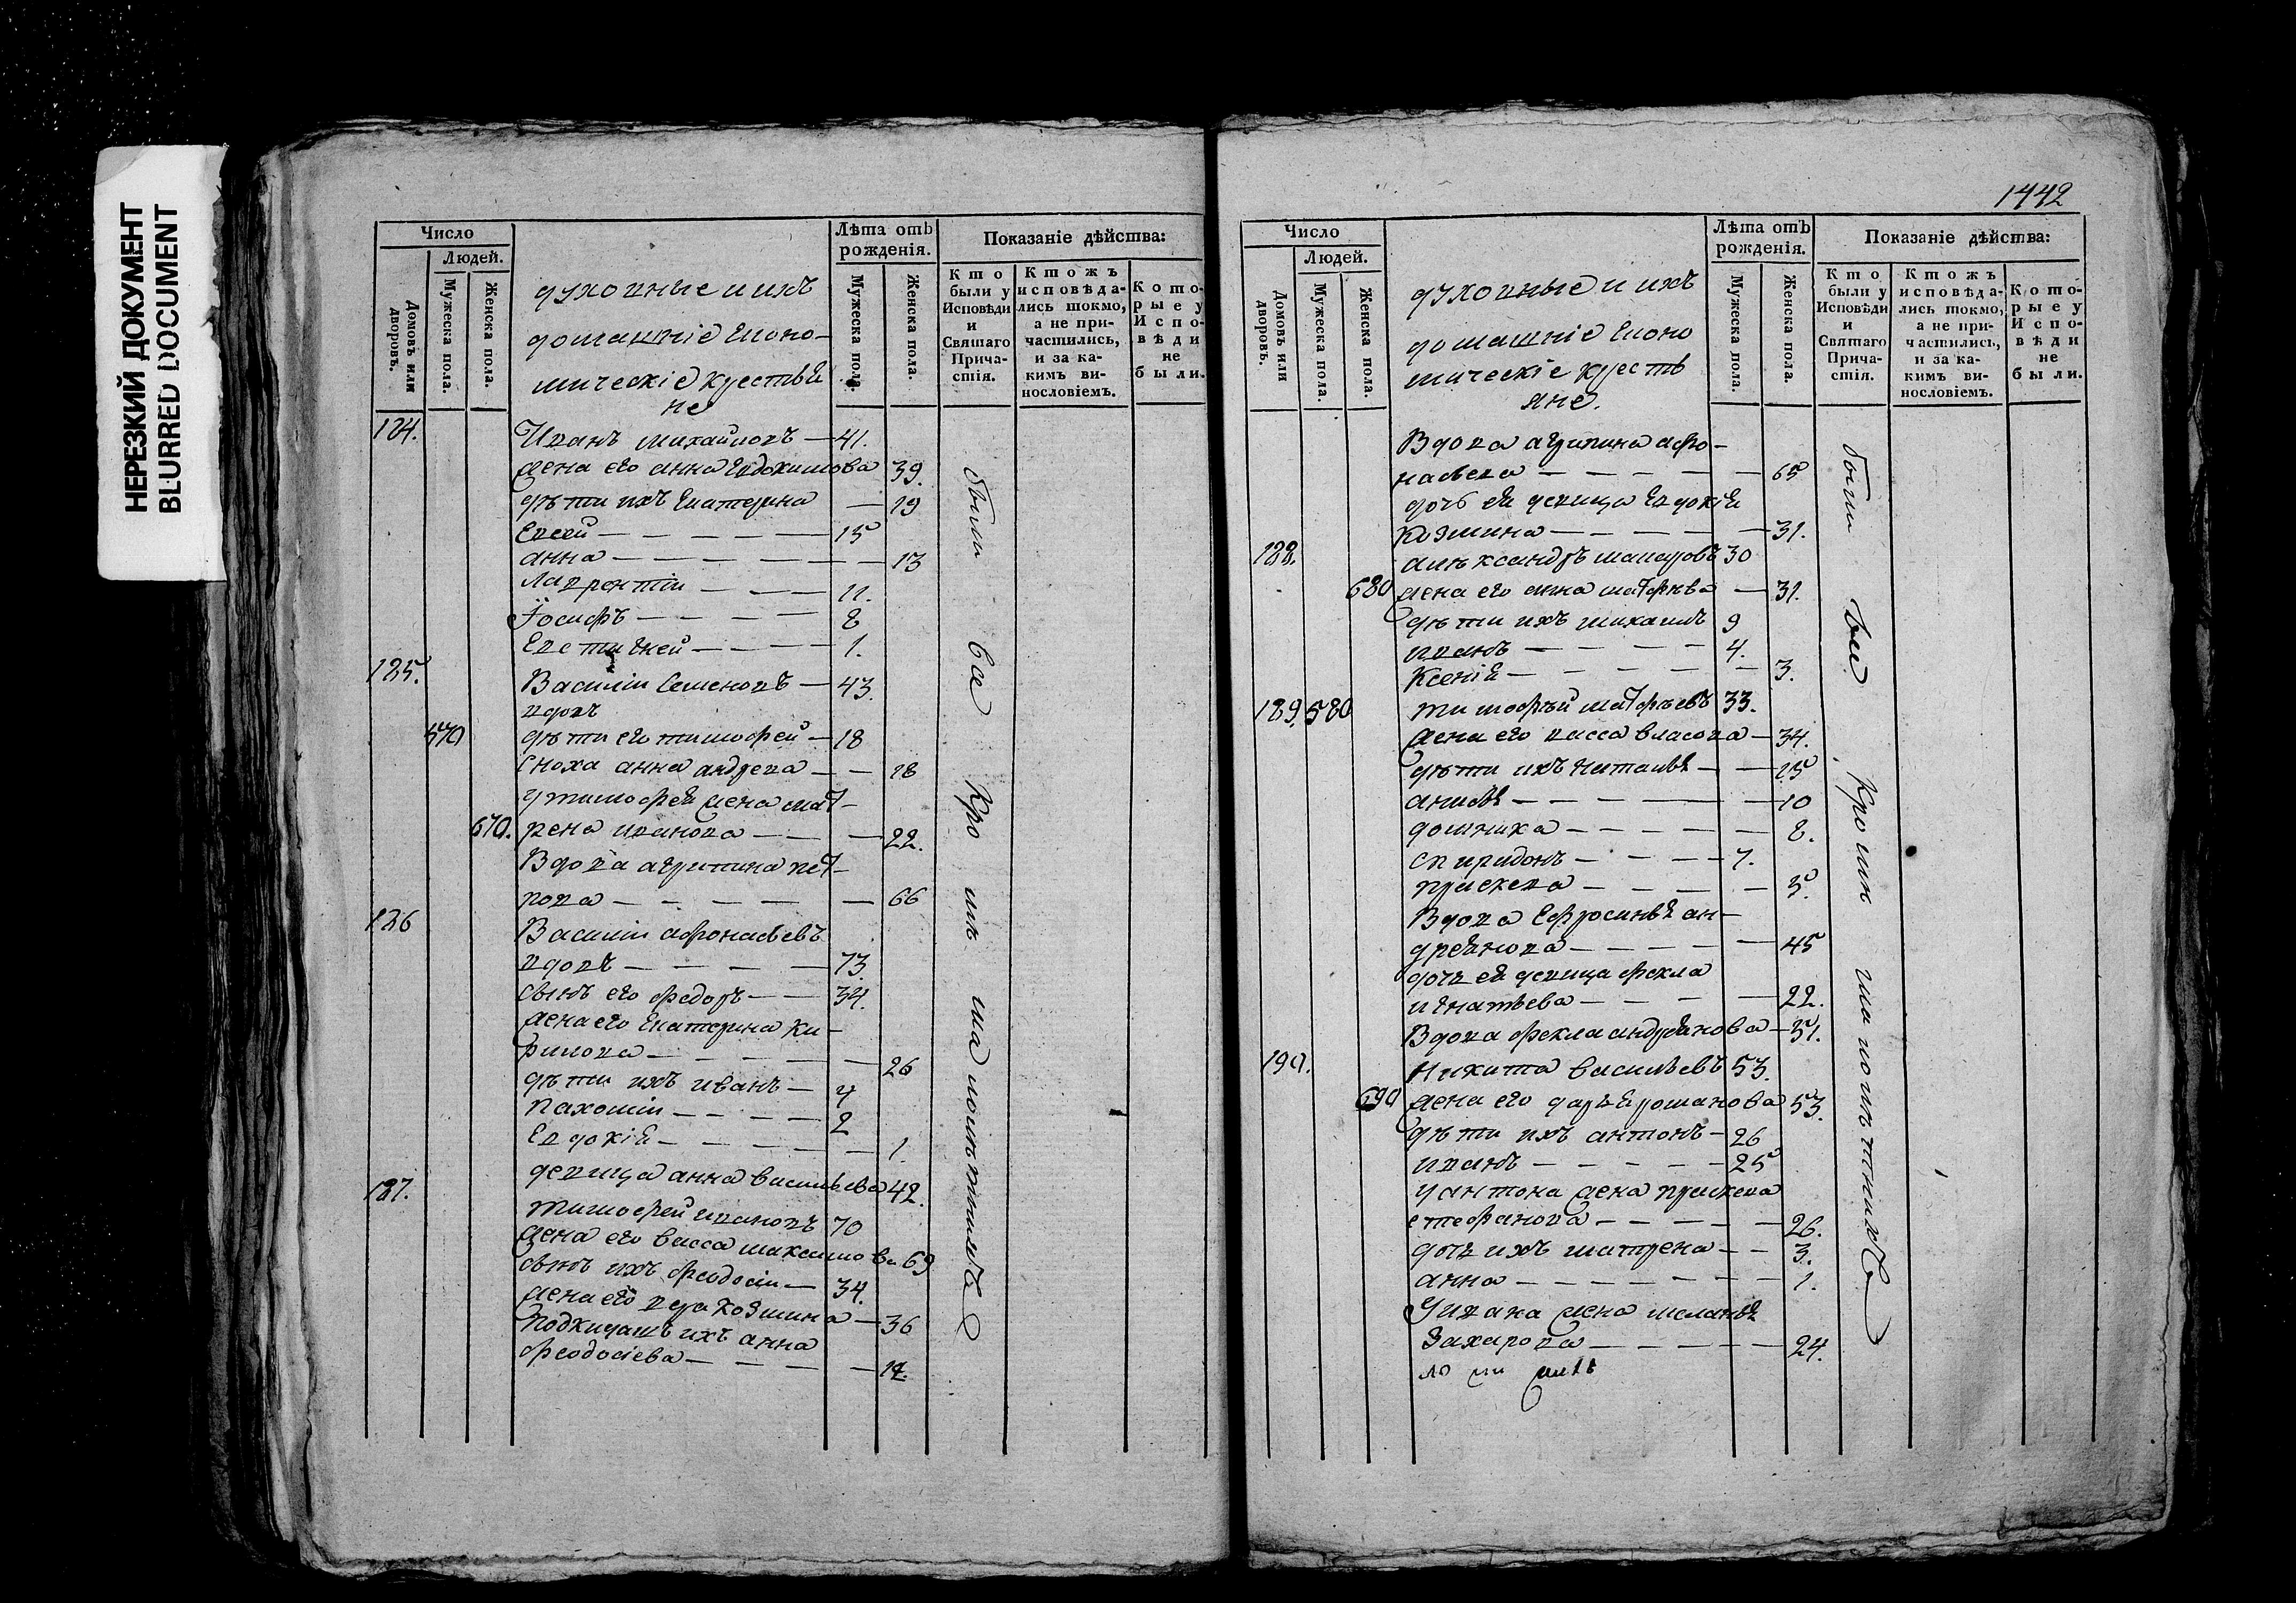 НЕРЕЗКИЙ ДОКУМЕНТ
BLURRED DOCUMENT
Число
Людей.
Домовъ или дворовъ.
Мужеска пола.
Женска пола.
духовные и ихъ
домашніе Еконо-
мическіе крестья
не
Лѣта отъ рожденія.
Мужеска пола.
Женска пола.
Показаніе дѣйства:
Кто были у Исповѣди и Святаго Прича-стія.
Ктожъ исповѣда-лись токмо, а не при-частились, и за ка-кимъ ви-нословіемъ.
Кото-рые у Испо-вѣди не были.
184. Иванъ михайловъ — 41.
жена его анна Евдокимова 39.
дѣти ихъ Екатерина — 19
Евсей — 15
анна — 13
Лаврентіи — 11.
Іосифъ — 8
Евстигней — 1.
185. Василіи Семеновъ — 43.
вдовъ
570 дѣти его тимофей — 18
Сноха анна андреева — 18
у тимофея жена мат-
670. рена иванова — 22.
Вдова агрипина пет-
рова — 66
186 Василіи афонасьевъ
вдовъ — 73.
сынъ его федоръ — 34.
жена его Екатерина Ки-
рилова — 26
дѣти ихъ иванъ — 4
Пахоміи — 2
Евдокія — 1.
девица анна васильева 42.
187. тимофей ивановъ 70
жена его васса максимова 69
сынъ ихъ феодосіи — 34.
жена его Козмина — 36
подкидышъ ихъ анна
феодосіева — 14.
были все кромѣ малолѣтныхъ
1442
Число
Людей.
Домовъ или дворовъ.
Мужеска пола.
Женска пола.
духовные и ихъ
домашніе Еконо
мическіе кресть
яне.
Лѣта отъ рожденія.
Мужеска пола.
Женска пола.
Показаніе дѣйства:
Кто были у Исповѣди и Святаго Прича-стія.
Ктожъ исповѣда-лись токмо, а не при-частились, и за ка-кимъ ви-нословіемъ.
Кото-рые у Испо-вѣди не были.
Вдова агрипина афо-
насьева — 65
дочь ея девица Евдокія
Козмина — 31.
188. алѣксандръ макаровъ 30
680 жена его анна матфѣева — 31.
дѣти ихъ михаилъ 9
иванъ — 4.
Ксенія — 3.
189. 580 тимофѣй матфѣевъ 33.
жена его васса власова — 34.
дѣти ихъ наталья — 15
анисья — 10
домника — 8.
спиридонъ — 7.
прасковя — 5.
Вдова Ефросинья ан-
дреянова — 45
дочь ея девица фекла
игнатьева — 22.
Вдова фекла андреянова — 51.
190. Никита васильевъ 53.
690 жена его дарья романова 53.
дѣти ихъ антонъ — 26
иванъ — 25
у антона жена прасковя
стефанова — 26.
дочь ихъ матрена — 3.
анна — 1.
У ивана жена меланья
Захарова — 24.
были все кромѣ малолѣтныхъ